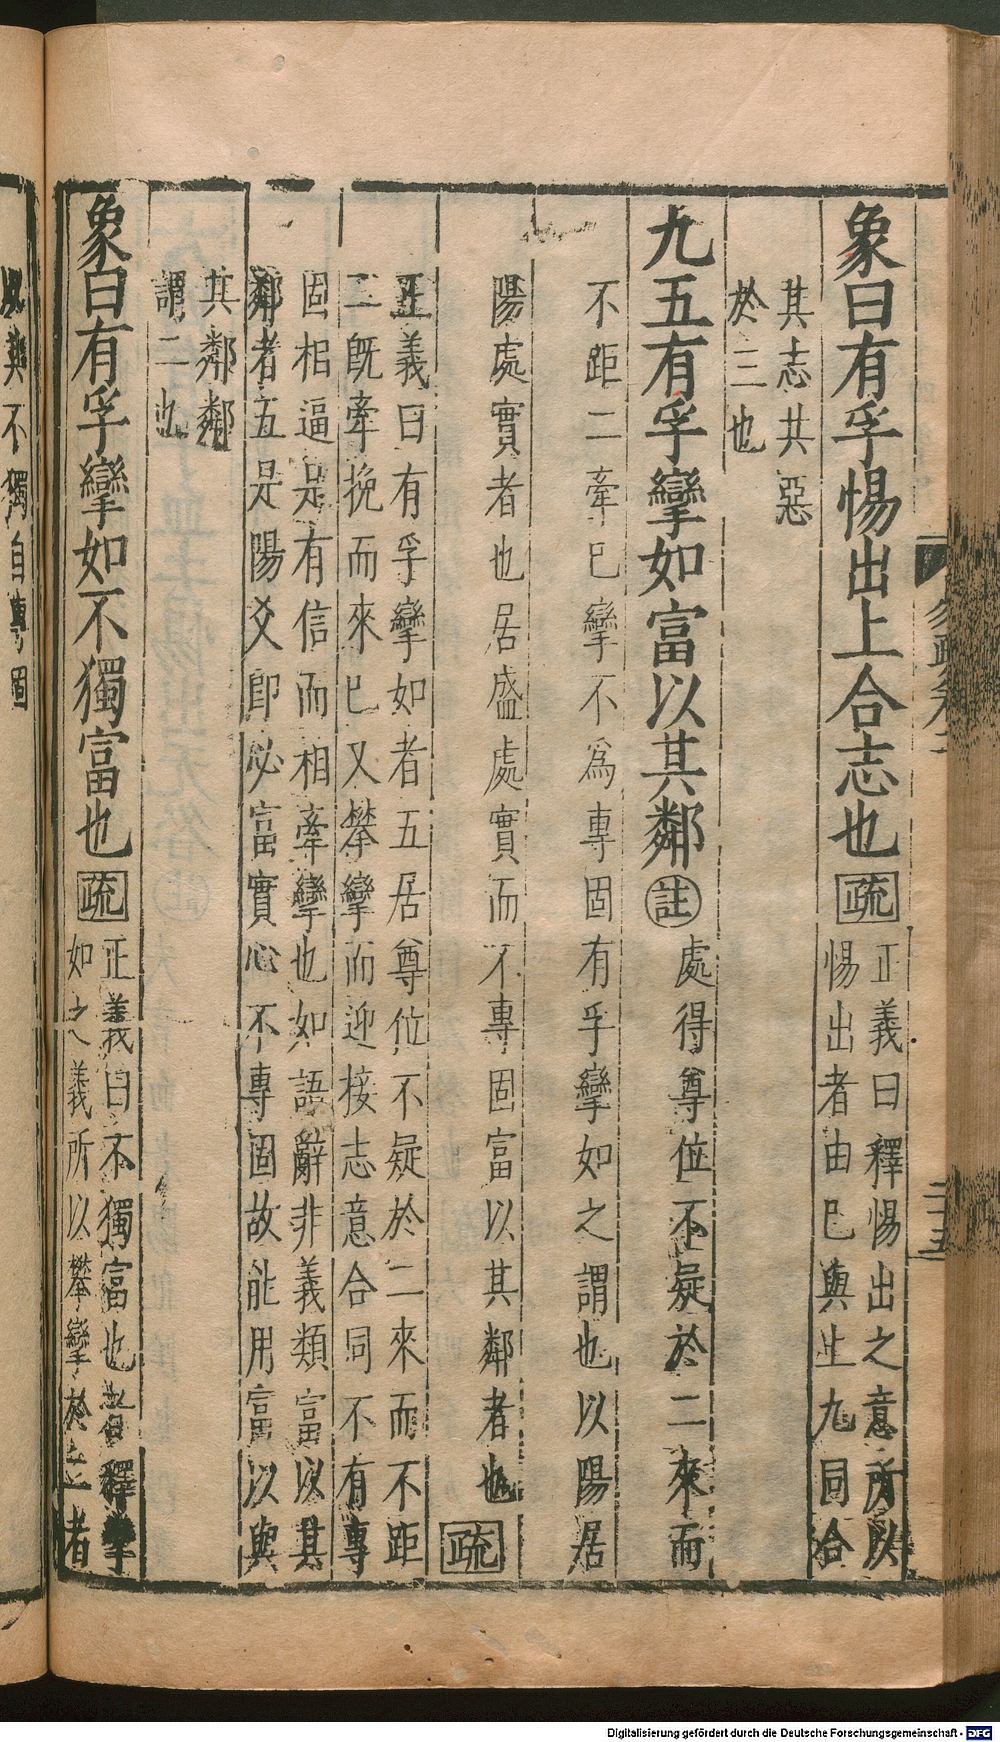 象曰有孚惕出上合志也疏正義曰釋惕出之意所以
惕出者由已與上九同合
其志共惡
於三也
九五有孚攣如富以其鄰註處得尊位不疑於二來而
不距二牽已攣不為專固有孚攣如之謂也以陽居
陽處實者也居盛處實而不專固富以其鄰者也疏
正義曰有孚攣如者五居尊位不疑於二來而不距
二旣牽挽而來已又攀攣而迎接志意合同不有專
固相逼是有信而相牽攣也如語辭非義類富以其
鄰者五是陽爻卽必富實心不專固故能用富以與
其鄰鄰
謂二也
象曰有孚攣如不獨富也疏正義曰不獨富也者釋攣
如之義所以攀攣於二者
不獨自專固
Digitalisierung gefördert durch die Deutsche Forschungsgemeinschaft - DFG